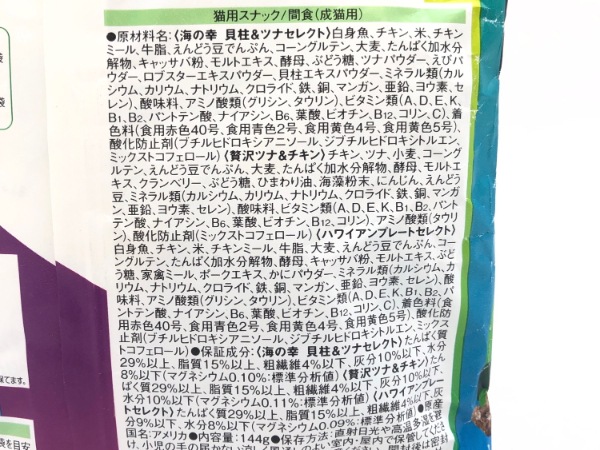 猫用スナック/間食(成猫用)
●原材料名:〈海の幸 貝柱&ツナセレクト〉白身魚、チキン、米、チキン
ミール、牛脂、えんどう豆でんぷん、コーングルテン、大麦、たんぱく加水分
解物、キャッサバ粉、モルトエキス、酵母、ぶどう糖、ツナパウダー、えびパ
ウダー、ロブスターエキスパウダー、貝柱エキスパウダー、ミネラル類(カル
シウム、カリウム、ナトリウム、クロライド、鉄、銅、マンガン、亜鉛、ヨウ素、セ
レン)、酸味料、アミノ酸類(グリシン、タウリン)、ビタミン類(A、D、E、K、
B1、B2、パントテン酸、ナイアシン、B6、葉酸、ビオチン、B12、コリン、C)、着
色料(食用赤色40号、食用青色2号、食用黄色4号、食用黄色5号)、
酸化防止剤(ブチルヒドロキシアニソール、ジブチルヒドロキシトルエン、
ミックストコフェロール)〈贅沢ツナ&チキン〉チキン、ツナ、小麦、コーング
ルテン、えんどう豆でんぷん、大麦、たんぱく加水分解物、酵母、モルト
エキス、クランベリー、ぶどう糖、ひまわり油、海藻粉末、にんじん、えんどう
豆、ミネラル類(カルシウム、カリウム、ナトリウム、クロライド、鉄、銅、マンガ
ン、亜鉛、ヨウ素、セレン)、酸味料、ビタミン類(A、D、E、K、B1、B2、パント
テン酸、ナイアシン、B6、葉酸、ビオチン、B12、コリン)、アミノ酸類(タウリ
ン)、酸化防止剤(ミックストコフェロール)〈ハワイアンプレートセレクト〉
白身魚、チキン、米、チキンミール、牛脂、大麦、えんどう豆でんぷん、コー
ングルテン、たんぱく加水分解物、酵母、キャッサバ粉、モルトエキス、ぶど
う糖、家禽ミール、ポークエキス、かにパウダー、ミネラル類(カルシウム、カ
リウム、ナトリウム、クロライド、鉄、銅、マンガン、亜鉛、ヨウ素、セレン)、酸
味料、アミノ酸類(グリシン、タウリン)、ビタミン類(A、D、E、K、B1、B2、パ
ントテン酸、ナイアシン、B6、葉酸、ビオチン、B12、コリン、C)、着色料(食
用赤色40号、食用青色2号、食用黄色4号、食用黄色5号)、酸化防
止剤(ブチルヒドロキシアニソール、ジブチルヒドロキシトルエン、ミックス
トコフェロール)●保証成分:〈海の幸 貝柱&ツナセレクト〉たんぱく質
29%以上、脂質15%以上、粗繊維4%以下、灰分10%以下、水分
8%以下(マグネシウム0.10%:標準分析値)〈贅沢ツナ&チキン〉たん
ぱく質29%以上、脂質15%以上、粗繊維4%以下、灰分10%以下、
水分10%以下(マグネシウム0.11%:標準分析値)〈ハワイアンプレー
トセレクト〉たんぱく質29%以上、脂質15%以上、粗繊維4%以下、灰
分9%以下、水分8%以下(マグネシウム0.09%:標準分析値)●原産
国:アメリカ●内容量:144g●保存方法:直射日光や高温多湿を避
け、小児の手の届かない涼しく風通しのよい室内・屋内で保管してくださ
開封後は密封
袋
袋
保てます。
を目安